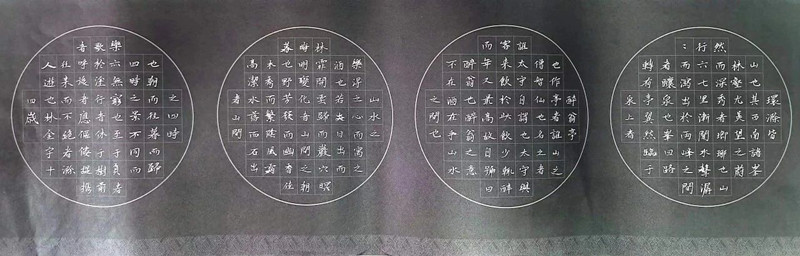 環滁皆
山也其西南諸峯
林壑尤美望之蔚
然而深秀者琅琊也山
行六七里漸聞水聲潺
〻而瀉出於兩峰之間
者釀泉也峯回路
轉有亭翼然臨于
泉上者
醉翁亭
也作亭者誰山之
僧智仙也名之者
誰太守自謂也太守與
客來飲於此飲少輒醉
而年又最高故自號曰
醉翁也醉翁之意
不在酒在乎山水
之間也
山水之
樂得之心而寓之
酒也若夫日出而
林霏開雲歸而巖穴暝
晦明變化者山間之朝
暮也野芳發而幽香佳
木秀而繁陰風霜
高潔水落而石出
者山間
之四時
也朝而往暮而歸
四時之景不同而
樂亦無窮也至于負者
歌於塗行者休于樹前
者呼後者應傴僂提攜
往來而不絕者滁
人遊也林全字十
四歲